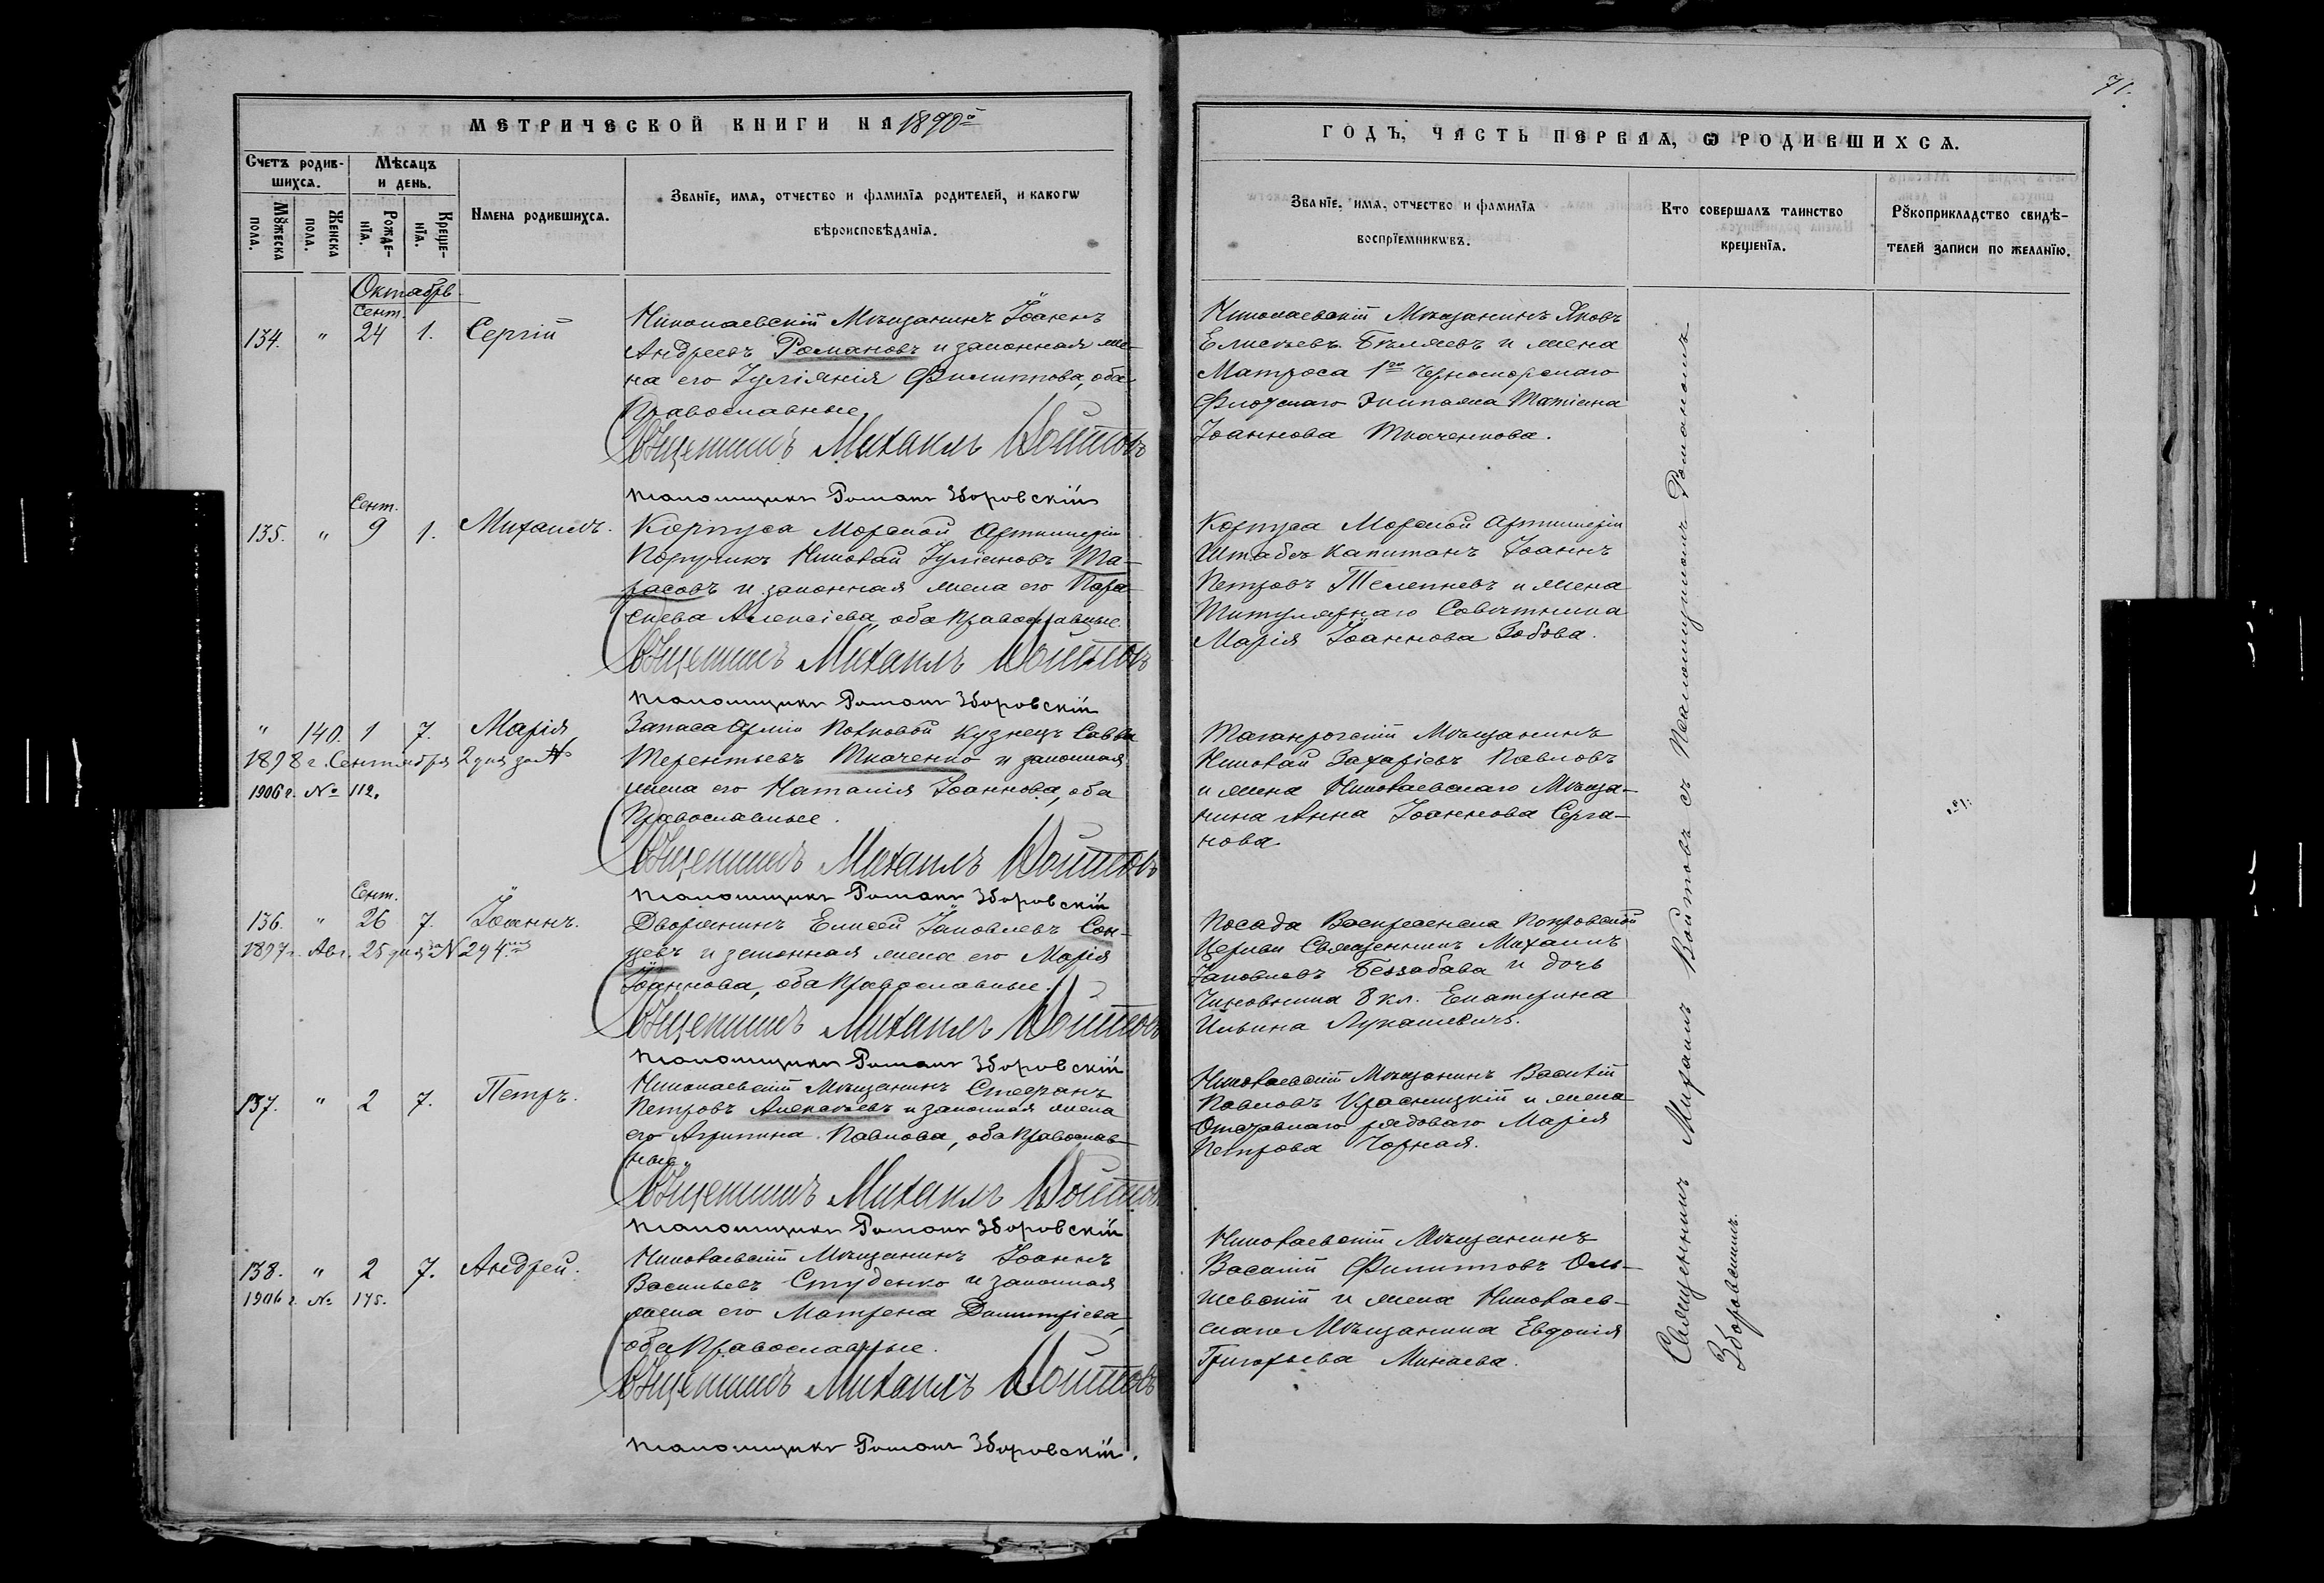 71.
МЕТРИЧЕСКОЙ КНИГИ НА 1890й
ГОДЪ, ЧАСТЬ ПЕРВАѦ, Ѡ РОДИВШИХСѦ.
Счетъ родив-
шихсѧ.
Мѣсѧцъ
и день.
Мꙋжеска
пола.
Женска
пола.
Рожде-
нїѧ.
Креще-
нїѧ.
Имена родившихсѧ.
Званїе, имѧ, отчество и фамилїѧ родителей, и какогѡ
вѣроисповѣданїѧ.
Званїе, имѧ, отчество и фамилїѧ
воспрїемникѡвъ.
Кто совершалъ таинство
крещенїѧ.
Рꙋкоприкладство свидѣ-
телей записи по желанїю.
Октябрь.
Сент.
134. " 24 1. Сергій
Николаевскій Мѣщанинъ Іоаннъ
Андреевъ Романовъ и законная же-
на его Іуліянія Филиппова, оба
Православные.
Священникъ Михаилъ Войтовъ
Псаломщикъ Романъ Зборовскій
Николаевскій Мѣщанинъ Яковъ
Елисѣевъ Бѣляевъ и жена
Матроса 1го Черноморскаго
Флотскаго Экипажа Татіана
Іоаннова Ткаченкова.
Сент.
135. " 9 1. Михаилъ.
Корпуса Морской Артиллеріи
Поручикъ Николай Іуліановъ Та-
расовъ и законная жена его Пара-
скева Алексіева, оба Православные.
Священникъ Михаилъ Войтовъ
Псаломщикъ Романъ Зборовскій
Корпуса Морской Артиллеріи
Штабсъ Капитанъ Іоаннъ
Петровъ Телепневъ и жена
Титулярнаго Совѣтника
Марія Іоаннова Зобова.
" 140. 1 7. Марія
1898 г. Сентября 2 дня за №
1906 г. № 112.
Запаса Арміи Полковой Кузнецъ Савва
Терентьевъ Ткаченко и законная
жена его Наталія Іоаннова, оба
Православные.
Священникъ Михаилъ Войтовъ
Псаломщикъ Романъ Зборовскій
Таганрогскій Мѣщанинъ
Николай Захаріевъ Павловъ
и жена Николаевскаго Мѣща-
нина Анна Іоаннова Серга-
нова.
Сент.
136. " 26 7. Іоаннъ.
1897 г. Авг. 25 дня за № 294
Дворянинъ Елисей Іаковлевъ Сон-
цевъ и законная жена его Марія
Іоаннова, оба Православные.
Священникъ Михаилъ Войтовъ
Псаломщикъ Романъ Зборовскій
Посада Воскресенска Покровской
Церкви Священникъ Михаилъ
Іаковлевъ Беззабава и дочь
Чиновника 8 кл. Екатерина
Ильина Лукашевичъ.
137. " 2 7. Петръ.
Николаевскій Мѣщанинъ Стефанъ
Петровъ Алексѣевъ и законная жена
его Агрипина Павлова, оба Православ-
ные.
Священникъ Михаилъ Войтовъ
Псаломщикъ Романъ Зборовскій
Николаевскій Мѣщанинъ Василій
Павловъ Красницкій и жена
Отставнаго рядоваго Марія
Петрова Чорная.
138. " 2 7. Андрей.
1906 г. № 175.
Николаевскій Мѣщанинъ Іоаннъ
Васильевъ Студенко и законная
жена его Матрена Димитріева,
оба Православные.
Священникъ Михаилъ Войтовъ
Псаломщикъ Романъ Зборовскій.
Николаевскій Мѣщанинъ
Василій Филипповъ Оль-
шевскій и жена Николаев-
скаго Мѣщанина Евдокія
Григорьева Минаева.
Священникъ Михаилъ Войтовъ съ Псаломщикомъ Романомъ
Зборовскимъ.